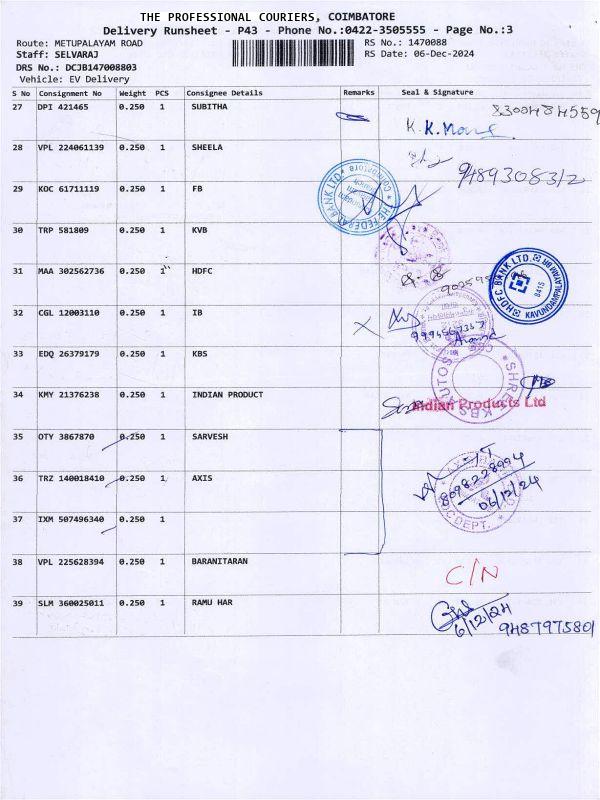 THE PROFESSIONAL COURIERS, COIMBATORE
Delivery Runsheet - P43 - Phone No.:0422-3505555 - Page No.:3
Route: METUPALAYAM ROAD RS No.: 1470088
Staff: SELVARAJ RS Date: 06-Dec-2024
DRS No.: DCJB147008803
Vehicle: EV Delivery
S No Consignment No Weight PCS Consignee Details Remarks Seal & Signature
27 DPI 421465 0.250 1 SUBITHA 8300484559
K. K. Mani
28 VPL 224061139 0.250 1 SHEELA 9489308312
29 KOC 61711119 0.250 1 FB THE FEDERAL BANK LTD
30 TRP 581809 0.250 1 KVB
31 MAA 302562736 0.250 1 HDFC HDFC BANK LTD. KAVUNDAMPALAYAM BR 8415
32 CGL 12003110 0.250 1 IB
33 EDQ 26379179 0.250 1 KBS SHREE KBS AUTOS CBE
34 KMY 21376238 0.250 1 INDIAN PRODUCT Indian Products Ltd
35 OTY 3867870 0.250 1 SARVESH
36 TRZ 140018410 0.250 1 AXIS 8098228994
06/12/24
DEPT.
37 IXM 507496340 0.250 1
38 VPL 225628394 0.250 1 BARANITARAN C/N
39 SLM 360025011 0.250 1 RAMU HAR 6/12/24 9487975801